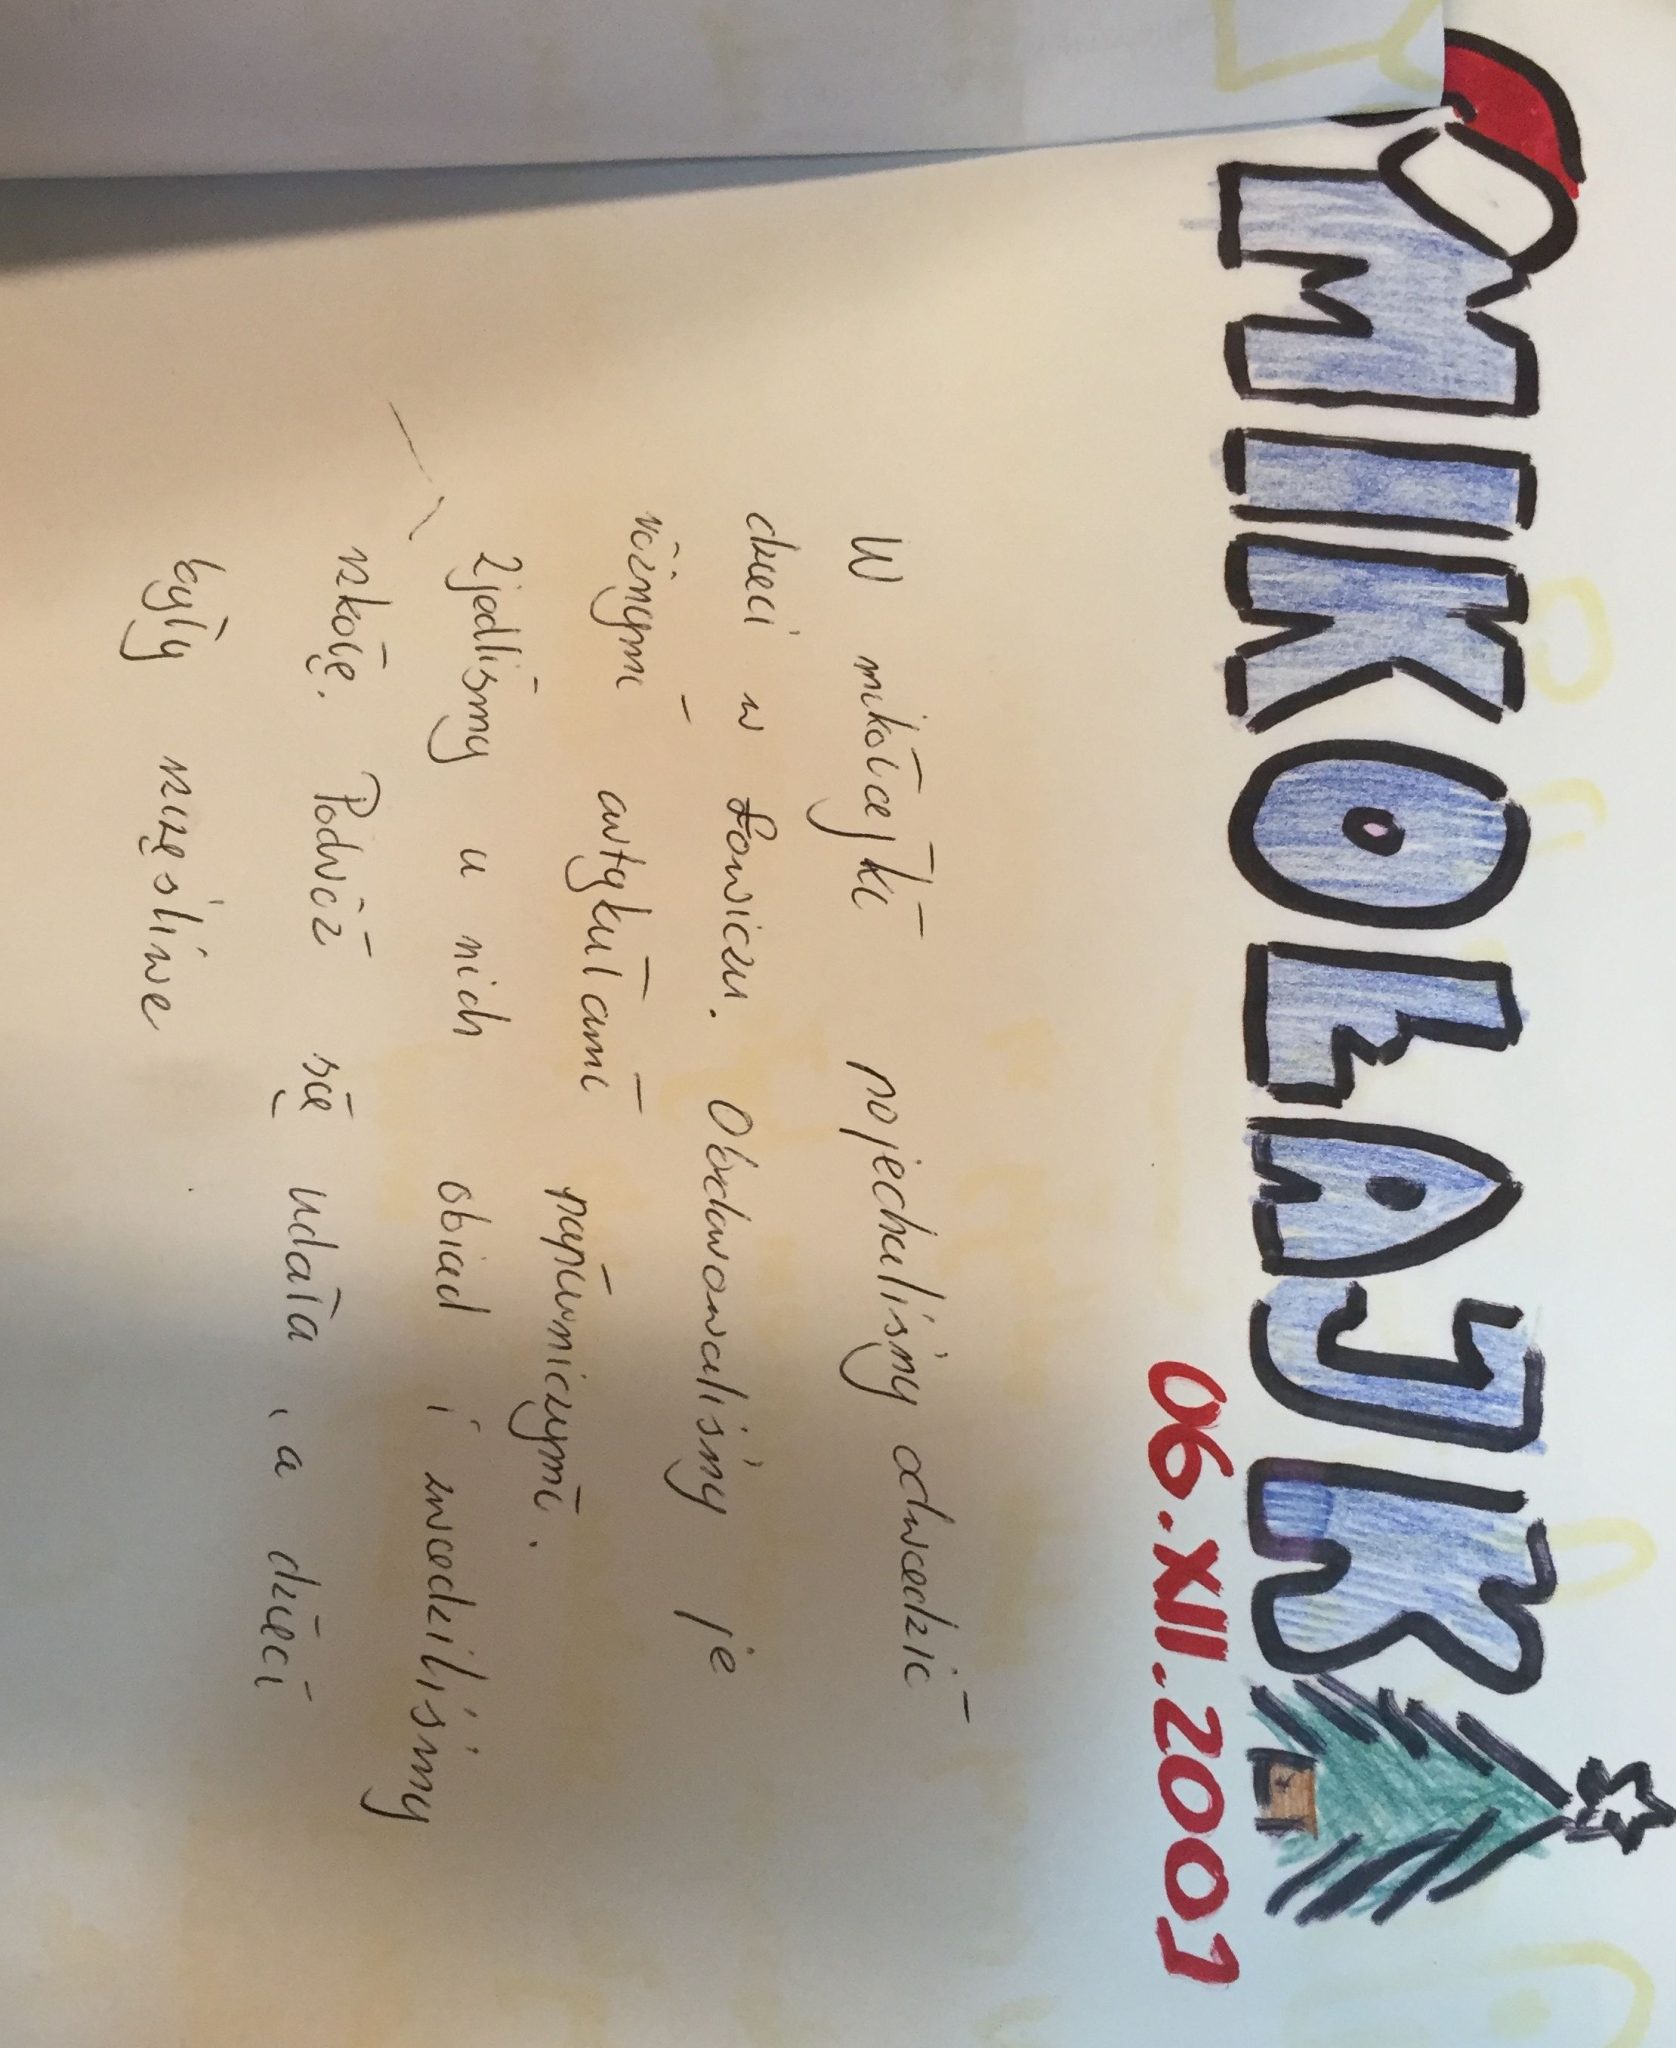 MIKOŁAJKI
06.XII.2001
W mikołajki pojechaliśmy odwiedzić
dzieci w Łowiczu. Obdarowaliśmy je
różnymi artykułami papierniczymi.
Zjedliśmy u nich obiad i zwiedziliśmy
szkołę. Podróż się udała, a dzieci
były szczęśliwe